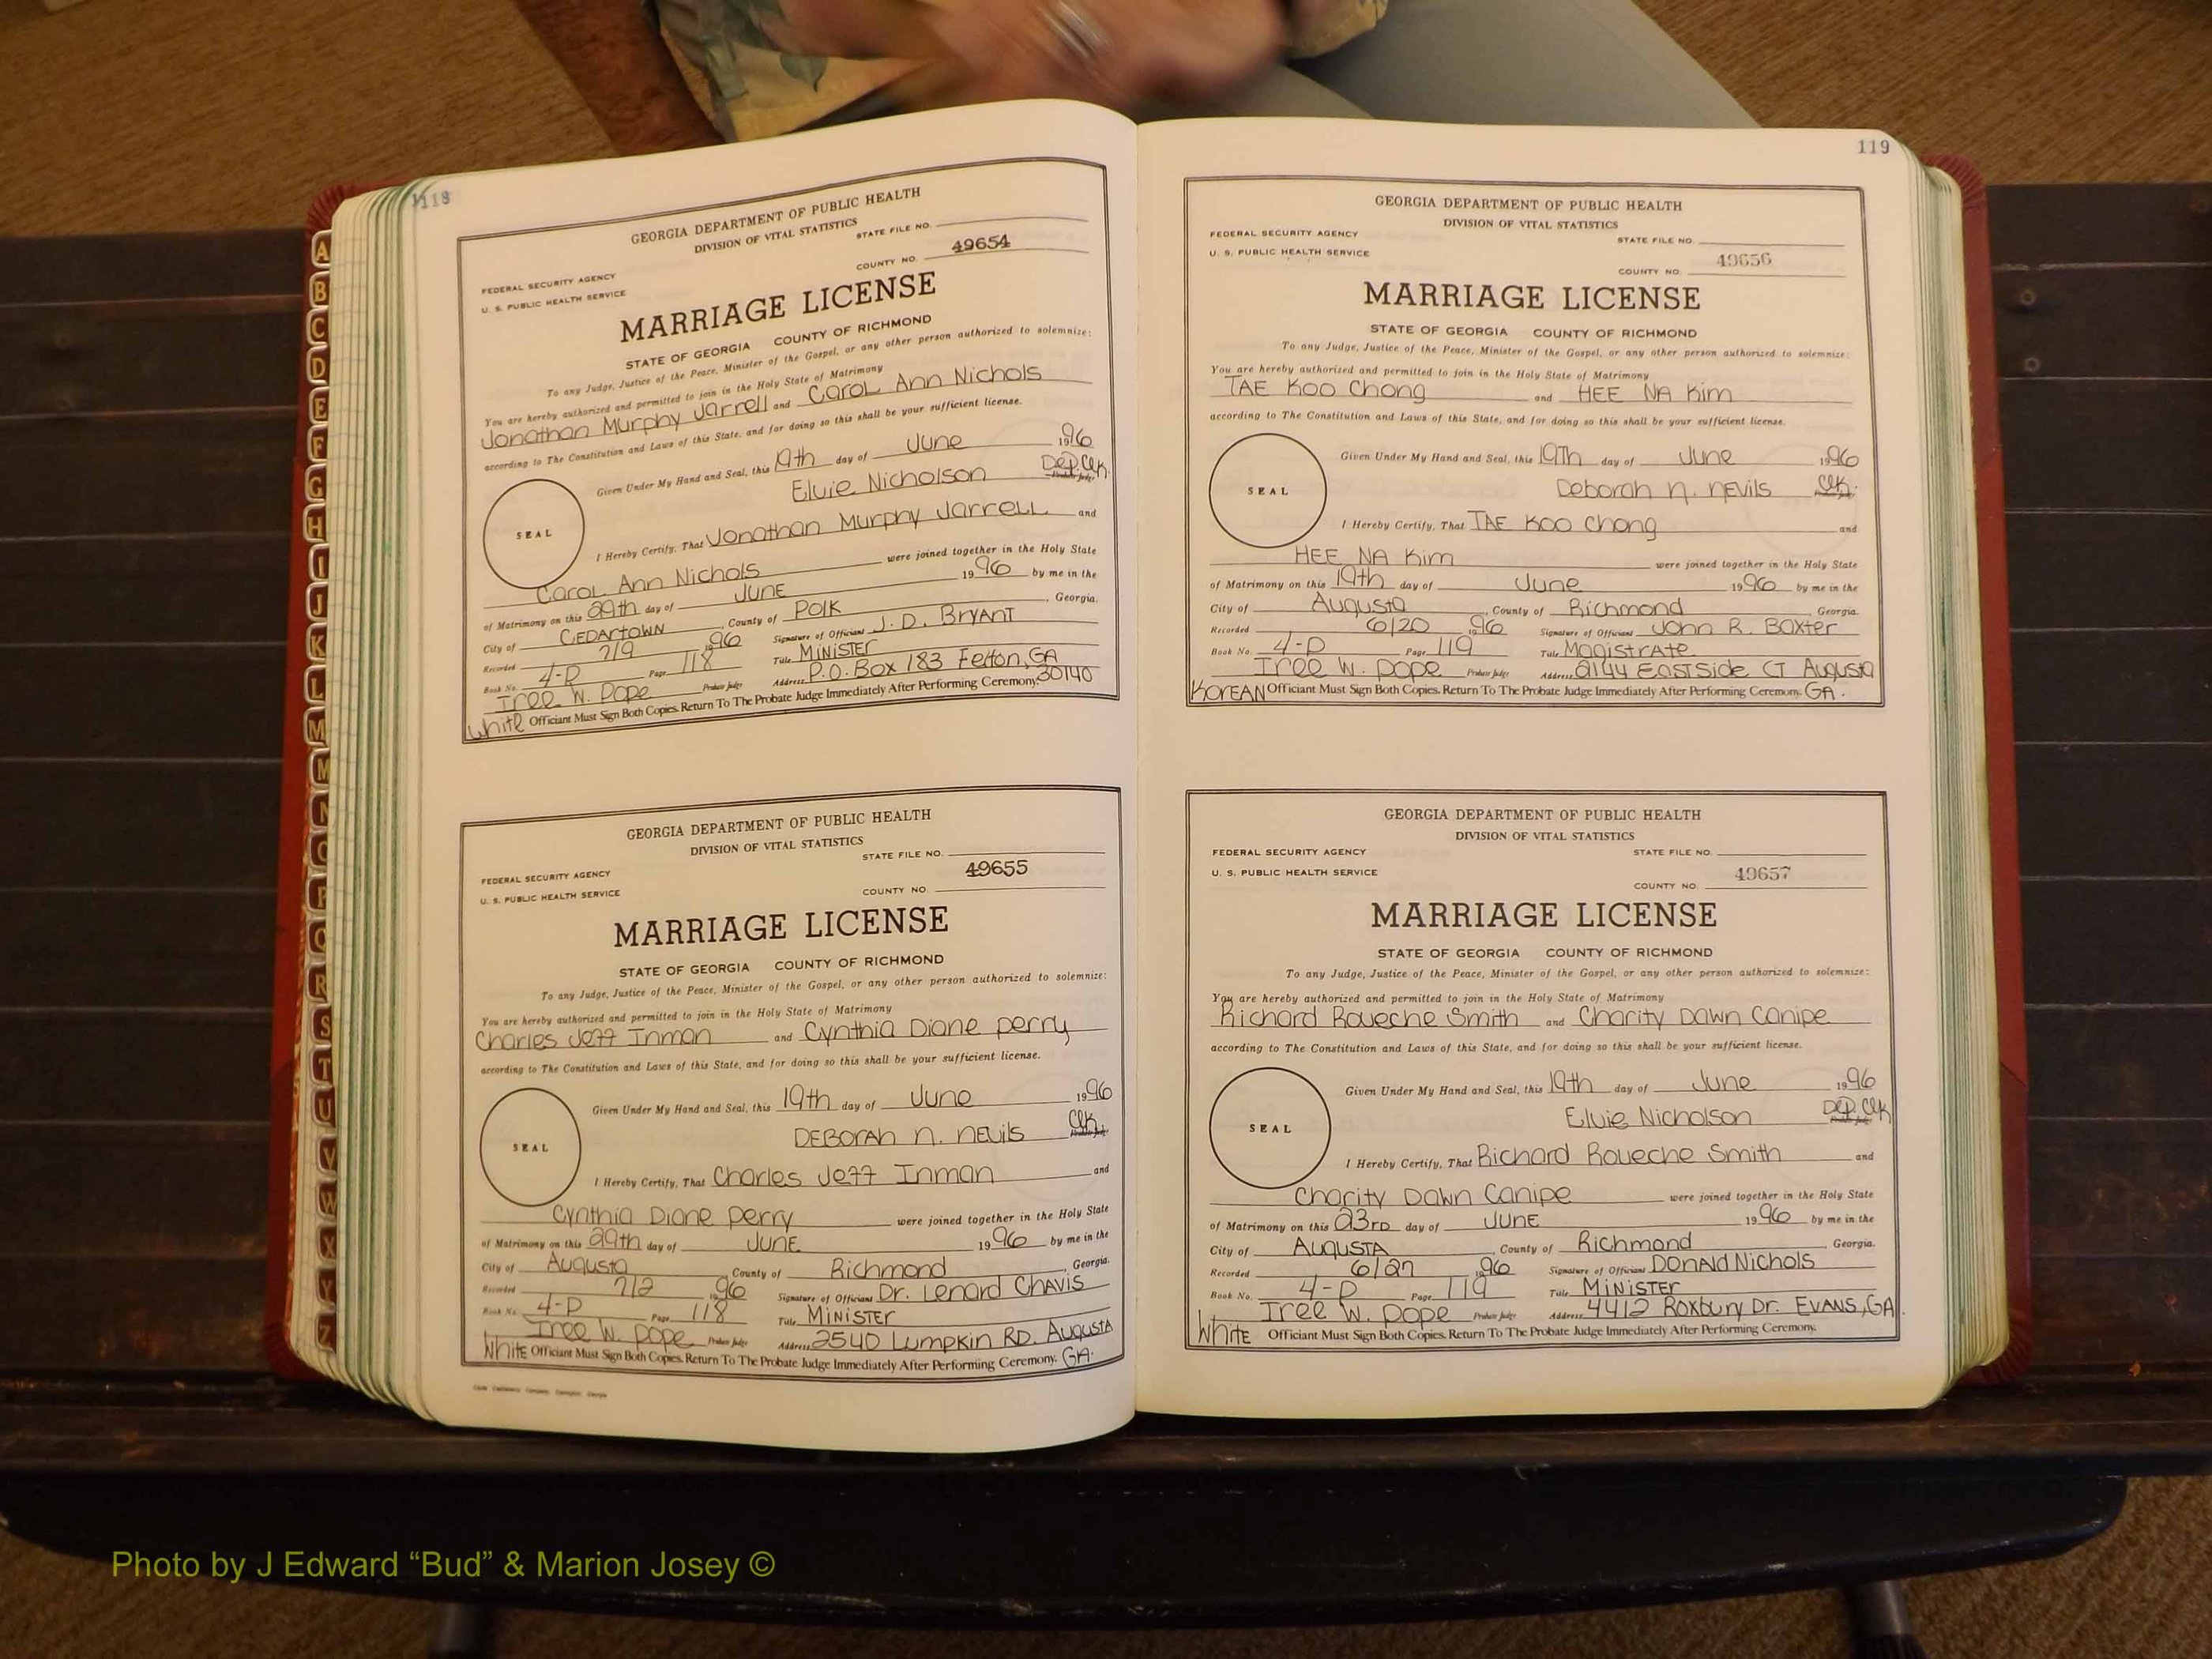 118
GEORGIA DEPARTMENT OF PUBLIC HEALTH
DIVISION OF VITAL STATISTICS
STATE FILE NO.
49654
COUNTY NO.
FEDERAL SECURITY AGENCY
U. S. PUBLIC HEALTH SERVICE
MARRIAGE LICENSE
STATE OF GEORGIA COUNTY OF RICHMOND
To any Judge, Justice of the Peace, Minister of the Gospel, or any other person authorized to solemnize:
You are hereby authorized and permitted to join in the Holy State of Matrimony
Jonathan Murphy Jarrell and Carol Ann Nichols
according to The Constitution and Laws of this State, and for doing so this shall be your sufficient license.
Given Under My Hand and Seal, this 19th day of June 1996
Elvie Nicholson Dep. Clk.
SEAL
I Hereby Certify, That Jonathan Murphy Jarrell and
Carol Ann Nichols were joined together in the Holy State
of Matrimony on this 29th day of JUNE 1996 by me in the
City of CEDARTOWN, County of POlK, Georgia.
Recorded 7/9 1996 Signature of Officiant J. D. BRYANT
Book No. 4-D Page 118 Title MINISTER
Iree W. Pope Probate Judge Address P.O. Box 183 Felton, GA 30140
White Officiant Must Sign Both Copies. Return To The Probate Judge Immediately After Performing Ceremony.
GEORGIA DEPARTMENT OF PUBLIC HEALTH
DIVISION OF VITAL STATISTICS
STATE FILE NO.
49655
FEDERAL SECURITY AGENCY
U. S. PUBLIC HEALTH SERVICE
COUNTY NO.
MARRIAGE LICENSE
STATE OF GEORGIA COUNTY OF RICHMOND
To any Judge, Justice of the Peace, Minister of the Gospel, or any other person authorized to solemnize:
You are hereby authorized and permitted to join in the Holy State of Matrimony
Charles Jeff Inman and Cynthia Diane perry
according to The Constitution and Laws of this State, and for doing so this shall be your sufficient license.
Given Under My Hand and Seal, this 19th day of June 1996
DEBORAH N. NEVILS Clk.
SEAL
I Hereby Certify, That Charles Jeff Inman and
Cynthia Diane perry were joined together in the Holy State
of Matrimony on this 29th day of JUNE 1996 by me in the
City of Augusta County of Richmond, Georgia.
Recorded 7/2 1996 Signature of Officiant Dr. Lenard Chavis
Book No. 4-D Page 118 Title MINISTER
Iree W. pope Probate Judge Address 2540 Lumpkin RD. Augusta
White Officiant Must Sign Both Copies. Return To The Probate Judge Immediately After Performing Ceremony. GA.
119
GEORGIA DEPARTMENT OF PUBLIC HEALTH
DIVISION OF VITAL STATISTICS
FEDERAL SECURITY AGENCY
STATE FILE NO.
U. S. PUBLIC HEALTH SERVICE
49656
COUNTY NO.
MARRIAGE LICENSE
STATE OF GEORGIA COUNTY OF RICHMOND
To any Judge, Justice of the Peace, Minister of the Gospel, or any other person authorized to solemnize:
You are hereby authorized and permitted to join in the Holy State of Matrimony
TAE Koo Chong and HEE NA Kim
according to The Constitution and Laws of this State, and for doing so this shall be your sufficient license.
Given Under My Hand and Seal, this 19Th day of June 1996
Deborah N. NEVILS Clk.
SEAL
I Hereby Certify, That TAE KOO Chong and
HEE NA Kim were joined together in the Holy State
of Matrimony on this 19th day of June 1996 by me in the
City of Augusta, County of Richmond, Georgia.
Recorded 6/20 1996 Signature of Officiant John R. Baxter
Book No. 4-D Page 119 Title Magistrate
Iree W. pope Probate Judge Address 2144 Eastside CT Augusta
KOREAN Officiant Must Sign Both Copies. Return To The Probate Judge Immediately After Performing Ceremony. GA.
GEORGIA DEPARTMENT OF PUBLIC HEALTH
DIVISION OF VITAL STATISTICS
FEDERAL SECURITY AGENCY
STATE FILE NO.
U. S. PUBLIC HEALTH SERVICE
49657
COUNTY NO.
MARRIAGE LICENSE
STATE OF GEORGIA COUNTY OF RICHMOND
To any Judge, Justice of the Peace, Minister of the Gospel, or any other person authorized to solemnize:
You are hereby authorized and permitted to join in the Holy State of Matrimony
Richard Roueche Smith and Charity Dawn Canipe
according to The Constitution and Laws of this State, and for doing so this shall be your sufficient license.
Given Under My Hand and Seal, this 19th day of June 1996
Elvie Nicholson Dep. Clk
SEAL
I Hereby Certify, That Richard Roueche Smith and
Charity Dawn Canipe were joined together in the Holy State
of Matrimony on this 23rd day of JUNE 1996 by me in the
City of AUGUSTA, County of Richmond, Georgia.
Recorded 6/27 1996 Signature of Officiant DONAld Nichols
Book No. 4-D Page 119 Title MINISTER
Iree W. pope Probate Judge Address 4412 Roxbury Dr. EVANS, GA.
White Officiant Must Sign Both Copies. Return To The Probate Judge Immediately After Performing Ceremony.
A
B
C
D
E
F
G
H
I
J
K
L
M
M
N
O
P
Q
R
S
T
U
V
W
X
Y
Z
Photo by J Edward “Bud” & Marion Josey ©